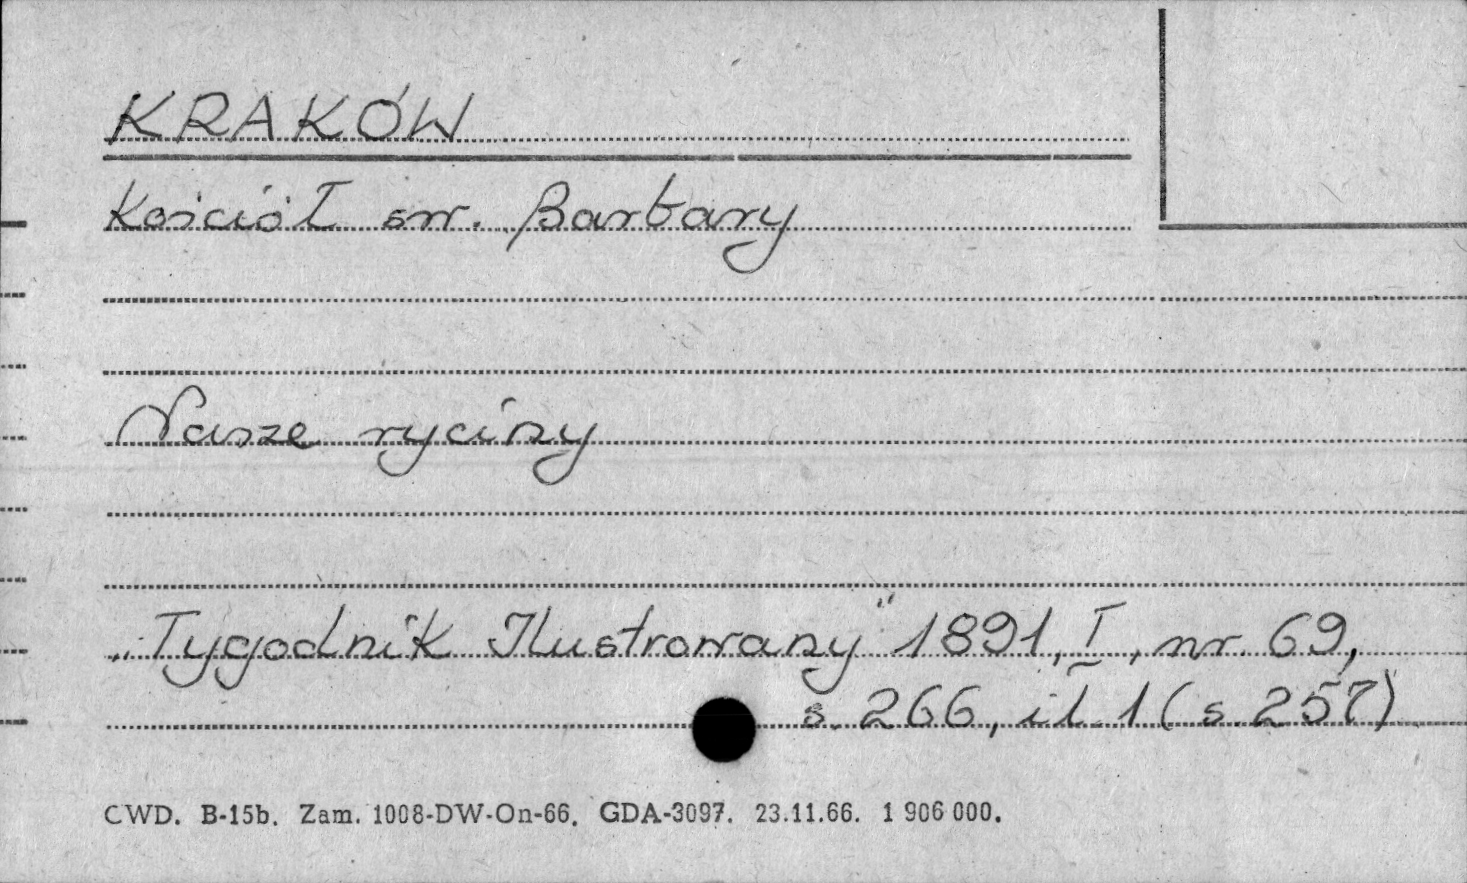 KRAKÓW
Kościół św. Barbary
Nasze ryciny
„Tygodnik Ilustrowany" 1891, I, nr. 69,
s. 266, il. 1 (s. 257)
CWD. B-15b. Zam. 1008-DW-On-66. GDA-3097. 23.11.66. 1 906 000.